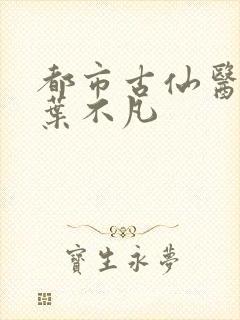 都市古仙醫
葉不凡
寶生永夢